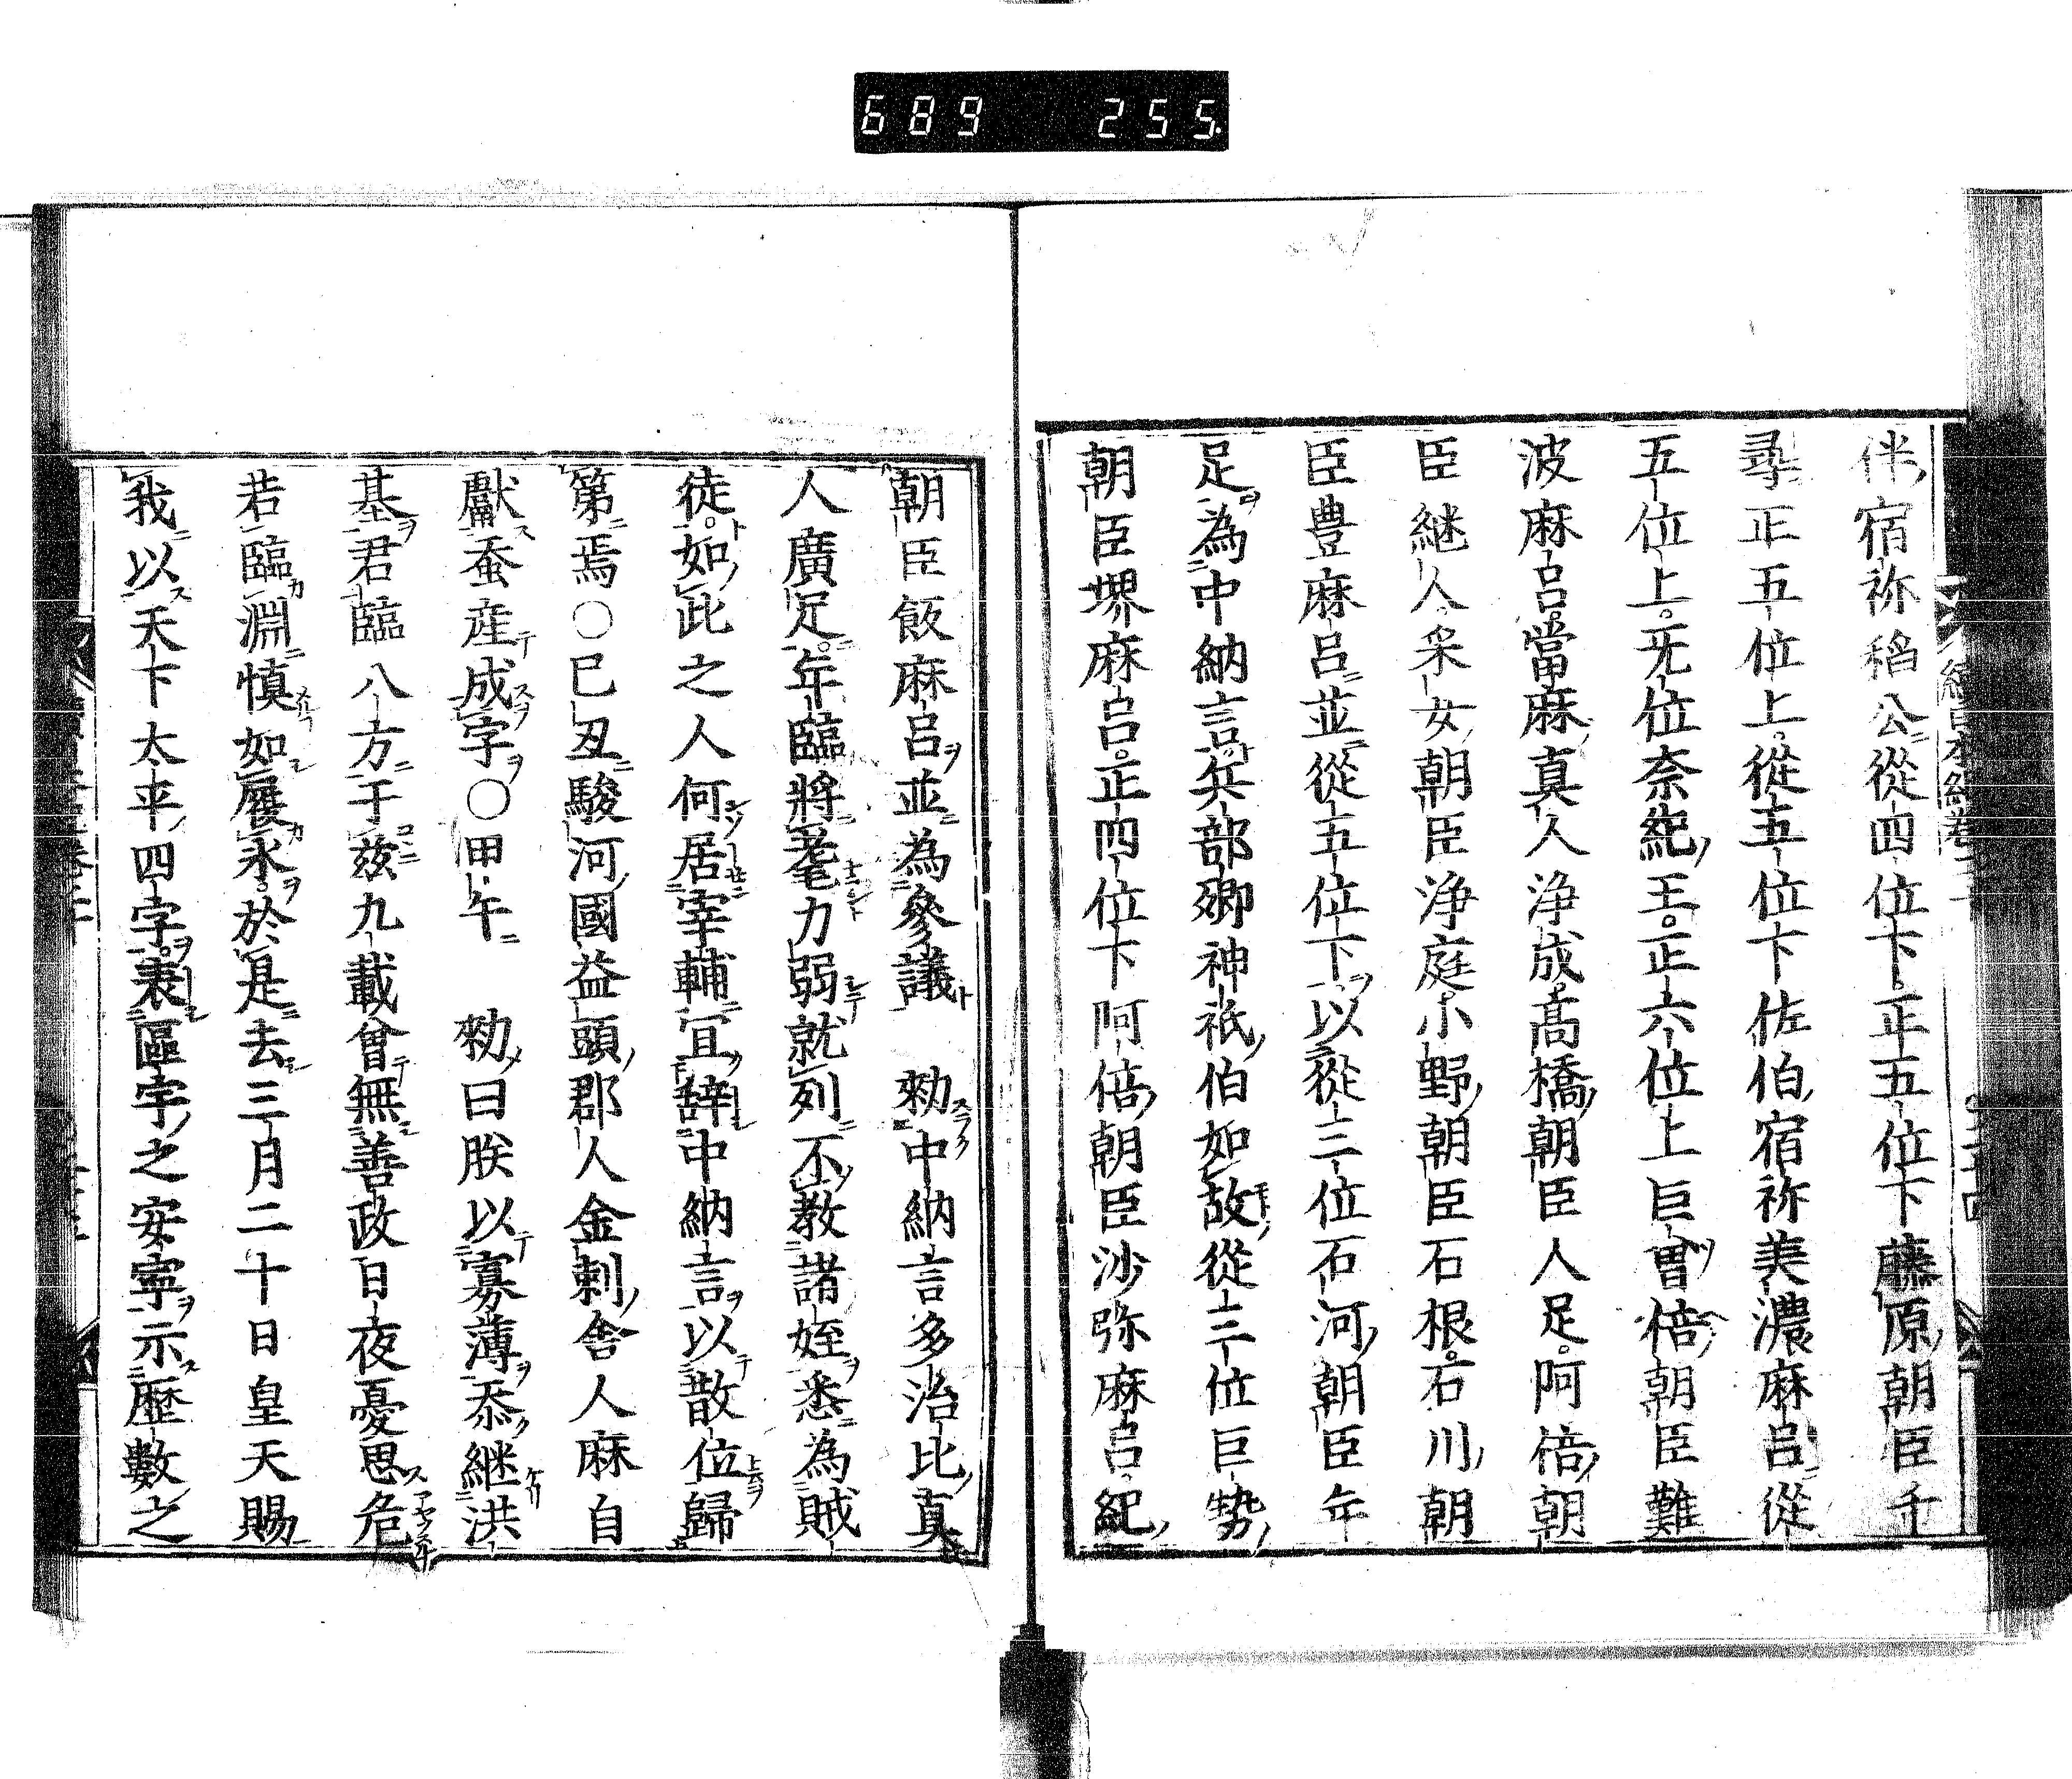 689 255.
伴宿祢稲公從四位下正五位下藤原朝臣千
尋正五位上從五位下佐伯宿祢美濃麻呂從
五位上无位奈紀王正六位上巨曽倍朝臣難
波麻呂當麻真人浄成髙橋朝臣人足阿倍朝
臣継人釆女朝臣浄庭小野朝臣石根石川朝
臣豊麻呂並從五位下以從三位石河朝臣年
足為中納言兵部卿神祇伯如故從三位巨勢
朝臣堺麻呂正四位下阿倍朝臣沙弥麻呂紀
朝臣飯麻呂並為參議 勑中納言多治比真
人廣足年臨將耄力弱就列不教諸姪悉為賊
徒如此之人何居宰輔宜辞中納言以散位歸
第焉○已丑駿河國益頭郡人金刺舎人麻自
獻蚕産成字○甲午 勑曰朕以寡薄忝継洪
基君臨八方于茲九載曽無善政日夜憂思危
若臨淵慎如履氷於是去三月二十日皇天賜
我以天下太平四字表區宇之安寧示歴數之